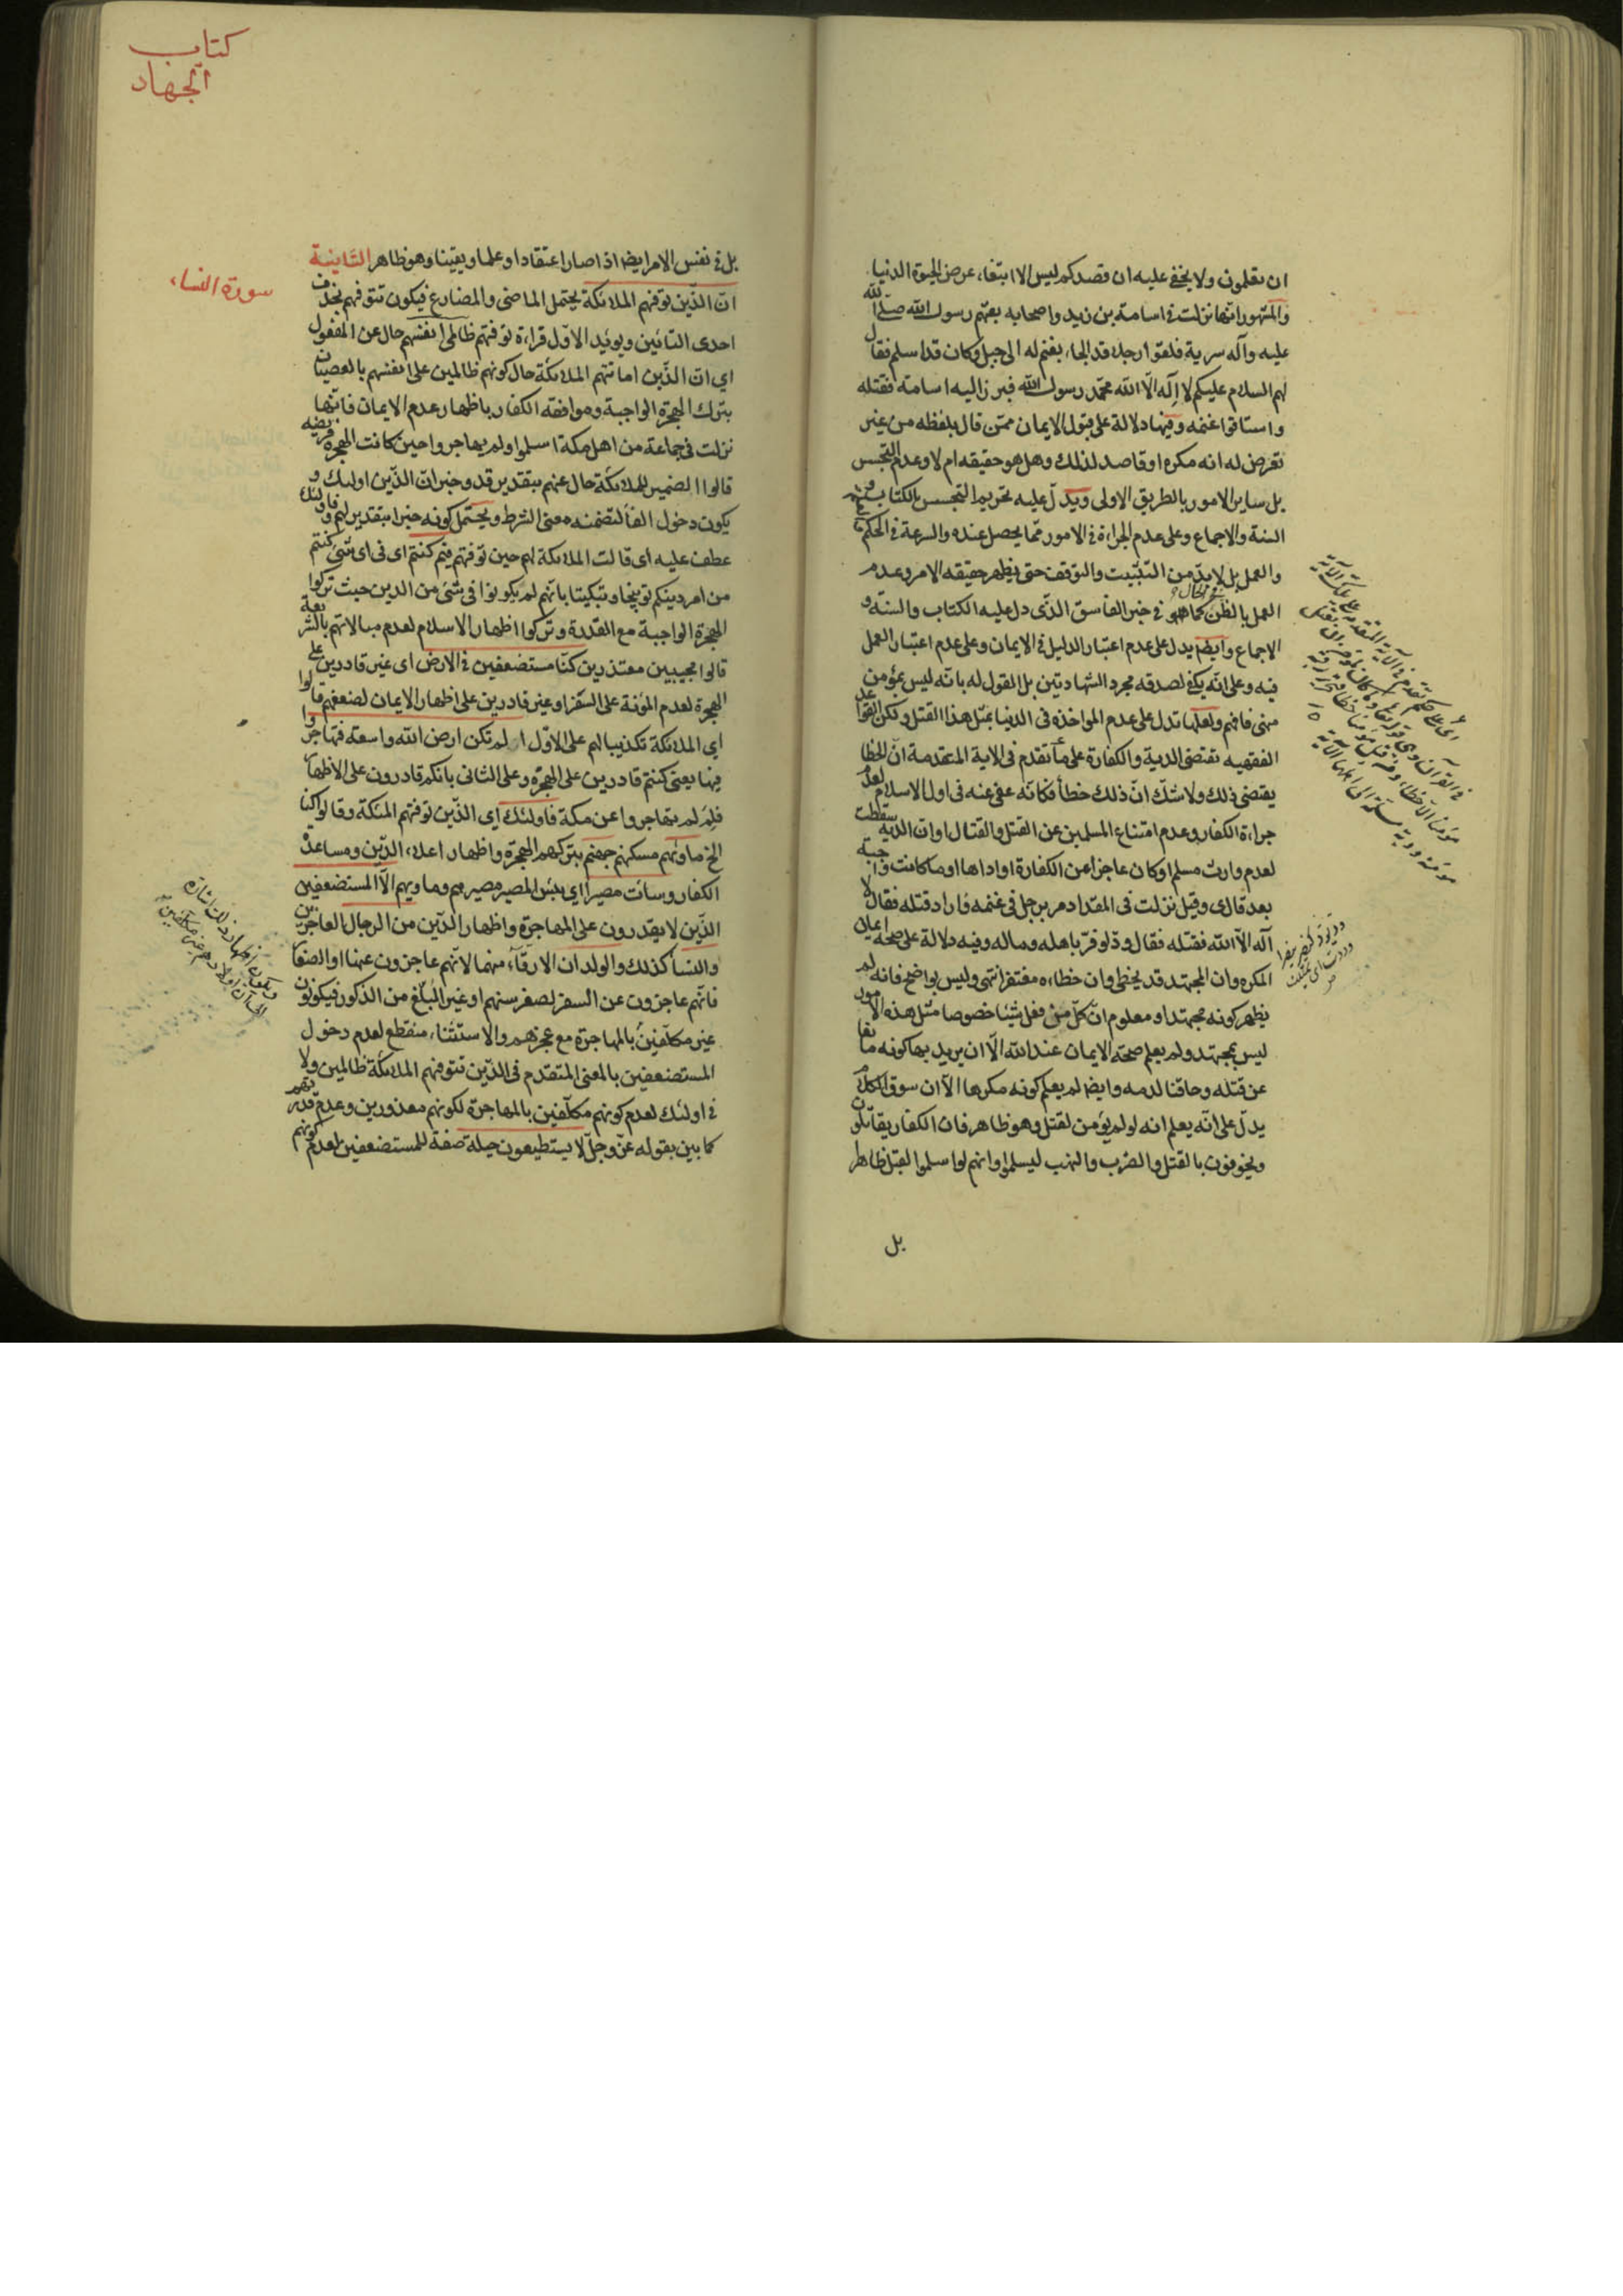 ان تعلمون ولا يخفى عليه ان قصدكم ليس الا ابتغاء عرض الحيوة الدنيا
والمشهور انها نزلت فى اسامة بن زيد واصحابه بعثهم رسول الله صلى الله
عليه وآله سرية فلقوا رجلا قد الجاء بغنم له الى جبل وكان قد اسلم فقال
لهم السلام عليكم لا اله الا الله محمد رسول الله فبرز اليه اسامة فقتله
واستاقوا غنمه وفيها دلالة على قبول الايمان ممن قال بلفظه من غير
تعرض له انه مكره او قاصد لذلك وهل هو حقيقه ام لا وعدم التجسس
بل ساير الامور بالطريق الاولى ويدل عليه تحريم التجسس بالكتاب و
السنة والاجماع وعلى عدم الجراءة فى الامور مما يحصل عنده والسرعة فى الحكم
والعمل بل لا بد من التثبيت والتوقف حتى يظهر حقيقه الامر وعدم
العمل بالظن كما هو فى خبر الفاسق الذى دل عليه الكتاب والسنة و
الاجماع وايضا يدل على عدم اعتبار الدليل فى الايمان وعلى عدم اعتبار العمل
فيه وعلى انه يكفى لصدقه مجرد الشهادتين بل القول له بانه ليس بمؤمن
منهى فافهم ولعلها تدل على عدم المواخذه فى الدنيا بمثل هذا القتل ولكن القواعد
الفقهيه تقتضى الدية والكفارة على ما تقدم فى الاية المتقدمة ان الخطا
يقتضى ذلك ولا شك ان ذلك خطأ فكانه عفى عنه فى اول الاسلام لعدم
جراءة الكفار وعدم امتناع المسلمين عن القتل والقتال او ان الدية سقطت
لعدم وارث مسلم او كان عاجزا عن الكفارة او اداها او ما كانت واجبة
بعد قال ى وقيل نزلت فى المقداد مر برجل فى غنمه فاراد قتله فقال لا
اله الا الله فقتله فقال ود لو فر باهله وماله وفيه دلالة على صحة ايمان
المكره وان المجتهد قد يخطى وان خطاءه مغتفر انتهى وليس بواضح فانه لم
يظهر كونه مجتهدا ومعلوم ان كل من فعل شيئا خصوصا مثل هذه الامور
ليس بمجتهد ولم يعلم صحة الايمان عند الله الا ان يريد بها كونه مانعا
عن قتله وحاقنا لدمه وايضا لم يعلم كونه مكرها الا ان سوق الكلام
يدل على انه يعلم انه لو لم يؤمن لقتل وهو ظاهر فان الكفار يقاتلون
ويخوفون بالقتل والضرب والنهب ليسلموا وانهم لو اسلموا لقبل ظاهرا
بل
كتاب
الجهاد
سورة النساء
بل فى نفس الامر ايضا اذا صار اعتقادا وعلما ويقينا وهو ظاهر الثانية
ان الذين توفيهم الملائكة يحتمل الماضى والمضارع فيكون تتوفيهم بحذف
احدى التائين ويوئيد الاول قراءة توفتهم ظالمى انفسهم حال عن المفعول
اي ان الذين اماتتهم الملائكة حال كونهم ظالمين على انفسهم بالعصيان
بترك الهجرة الواجبة وموافقة الكفار باظهار عدم الايمان فانها
نزلت فى جماعة من اهل مكة اسلموا ولم يهاجروا حين كانت الهجرة فريضه
قالوا الضمير للملائكة حال عنهم بتقدير قد وخبر ان الذين اولئك و
يكون دخول الفا لتضمنه معنى الشرط ويحتمل كونه خبرا بتقدير لهم فاولئك
عطف عليه اى قالت الملائكة لهم حين توفيهم فيم كنتم اى فى اى شئ كنتم
من امر دينكم توبيخا وتبكيتا بانهم لم يكونوا فى شئ من الدين حيث تركوا
الهجرة الواجبة مع القدرة وتركوا اظهار الاسلام لعدم مبالاتهم بالشريعة
قالوا مجيبين معتذرين كنا مستضعفين فى الارض اى غير قادرين على
الهجرة لعدم المؤنة على السفر او غير قادرين على اظهار الايمان لضعفهم قالوا
اي الملائكة تكذيبا لهم على الاول الم تكن ارض الله واسعة فتهاجروا
فيها يعنى كنتم قادرين على الهجرة وعلى الثانى بانكم قادرون على الاظهار
فلم لم تهاجروا عن مكة فاولئك اي الذين توفتهم الملئكة وقالوا كنا
الخ ماويهم مسكنهم جهنم بتركهم الهجرة واظهار اعلاء الدين ومساعدة
الكفار وساءت مصيرا اي بئس المصير مصيرهم وماويهم الا المستضعفين
الذين لا يقدرون على المهاجرة واظهار الدين من الرجال العاجزين
والنسا كذلك والولدان الارقاء منهما لانهم عاجزون عنها او الصغار
فانهم عاجزون عن السفر لصغر سنهم او غير البلغ من الذكور فيكونون
غير مكلفين بالمهاجرة مع عجزهم والاستثناء منقطع لعدم دخول
المستضعفين بالمعنى المتقدم فى الذين تتوفيهم الملائكة ظالمين ولا
فى اولئك لعدم كونهم مكلفين بالمهاجرة لكونهم معذورين وعدم قدرتهم
كما بين بقوله عز وجل لا يستطيعون حيلة صفة للمستضعفين لعدم كونهم